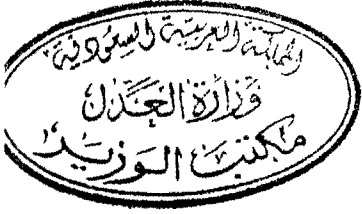 المملكة العربية السعودية
وزارة العدل
مكتب الوزير